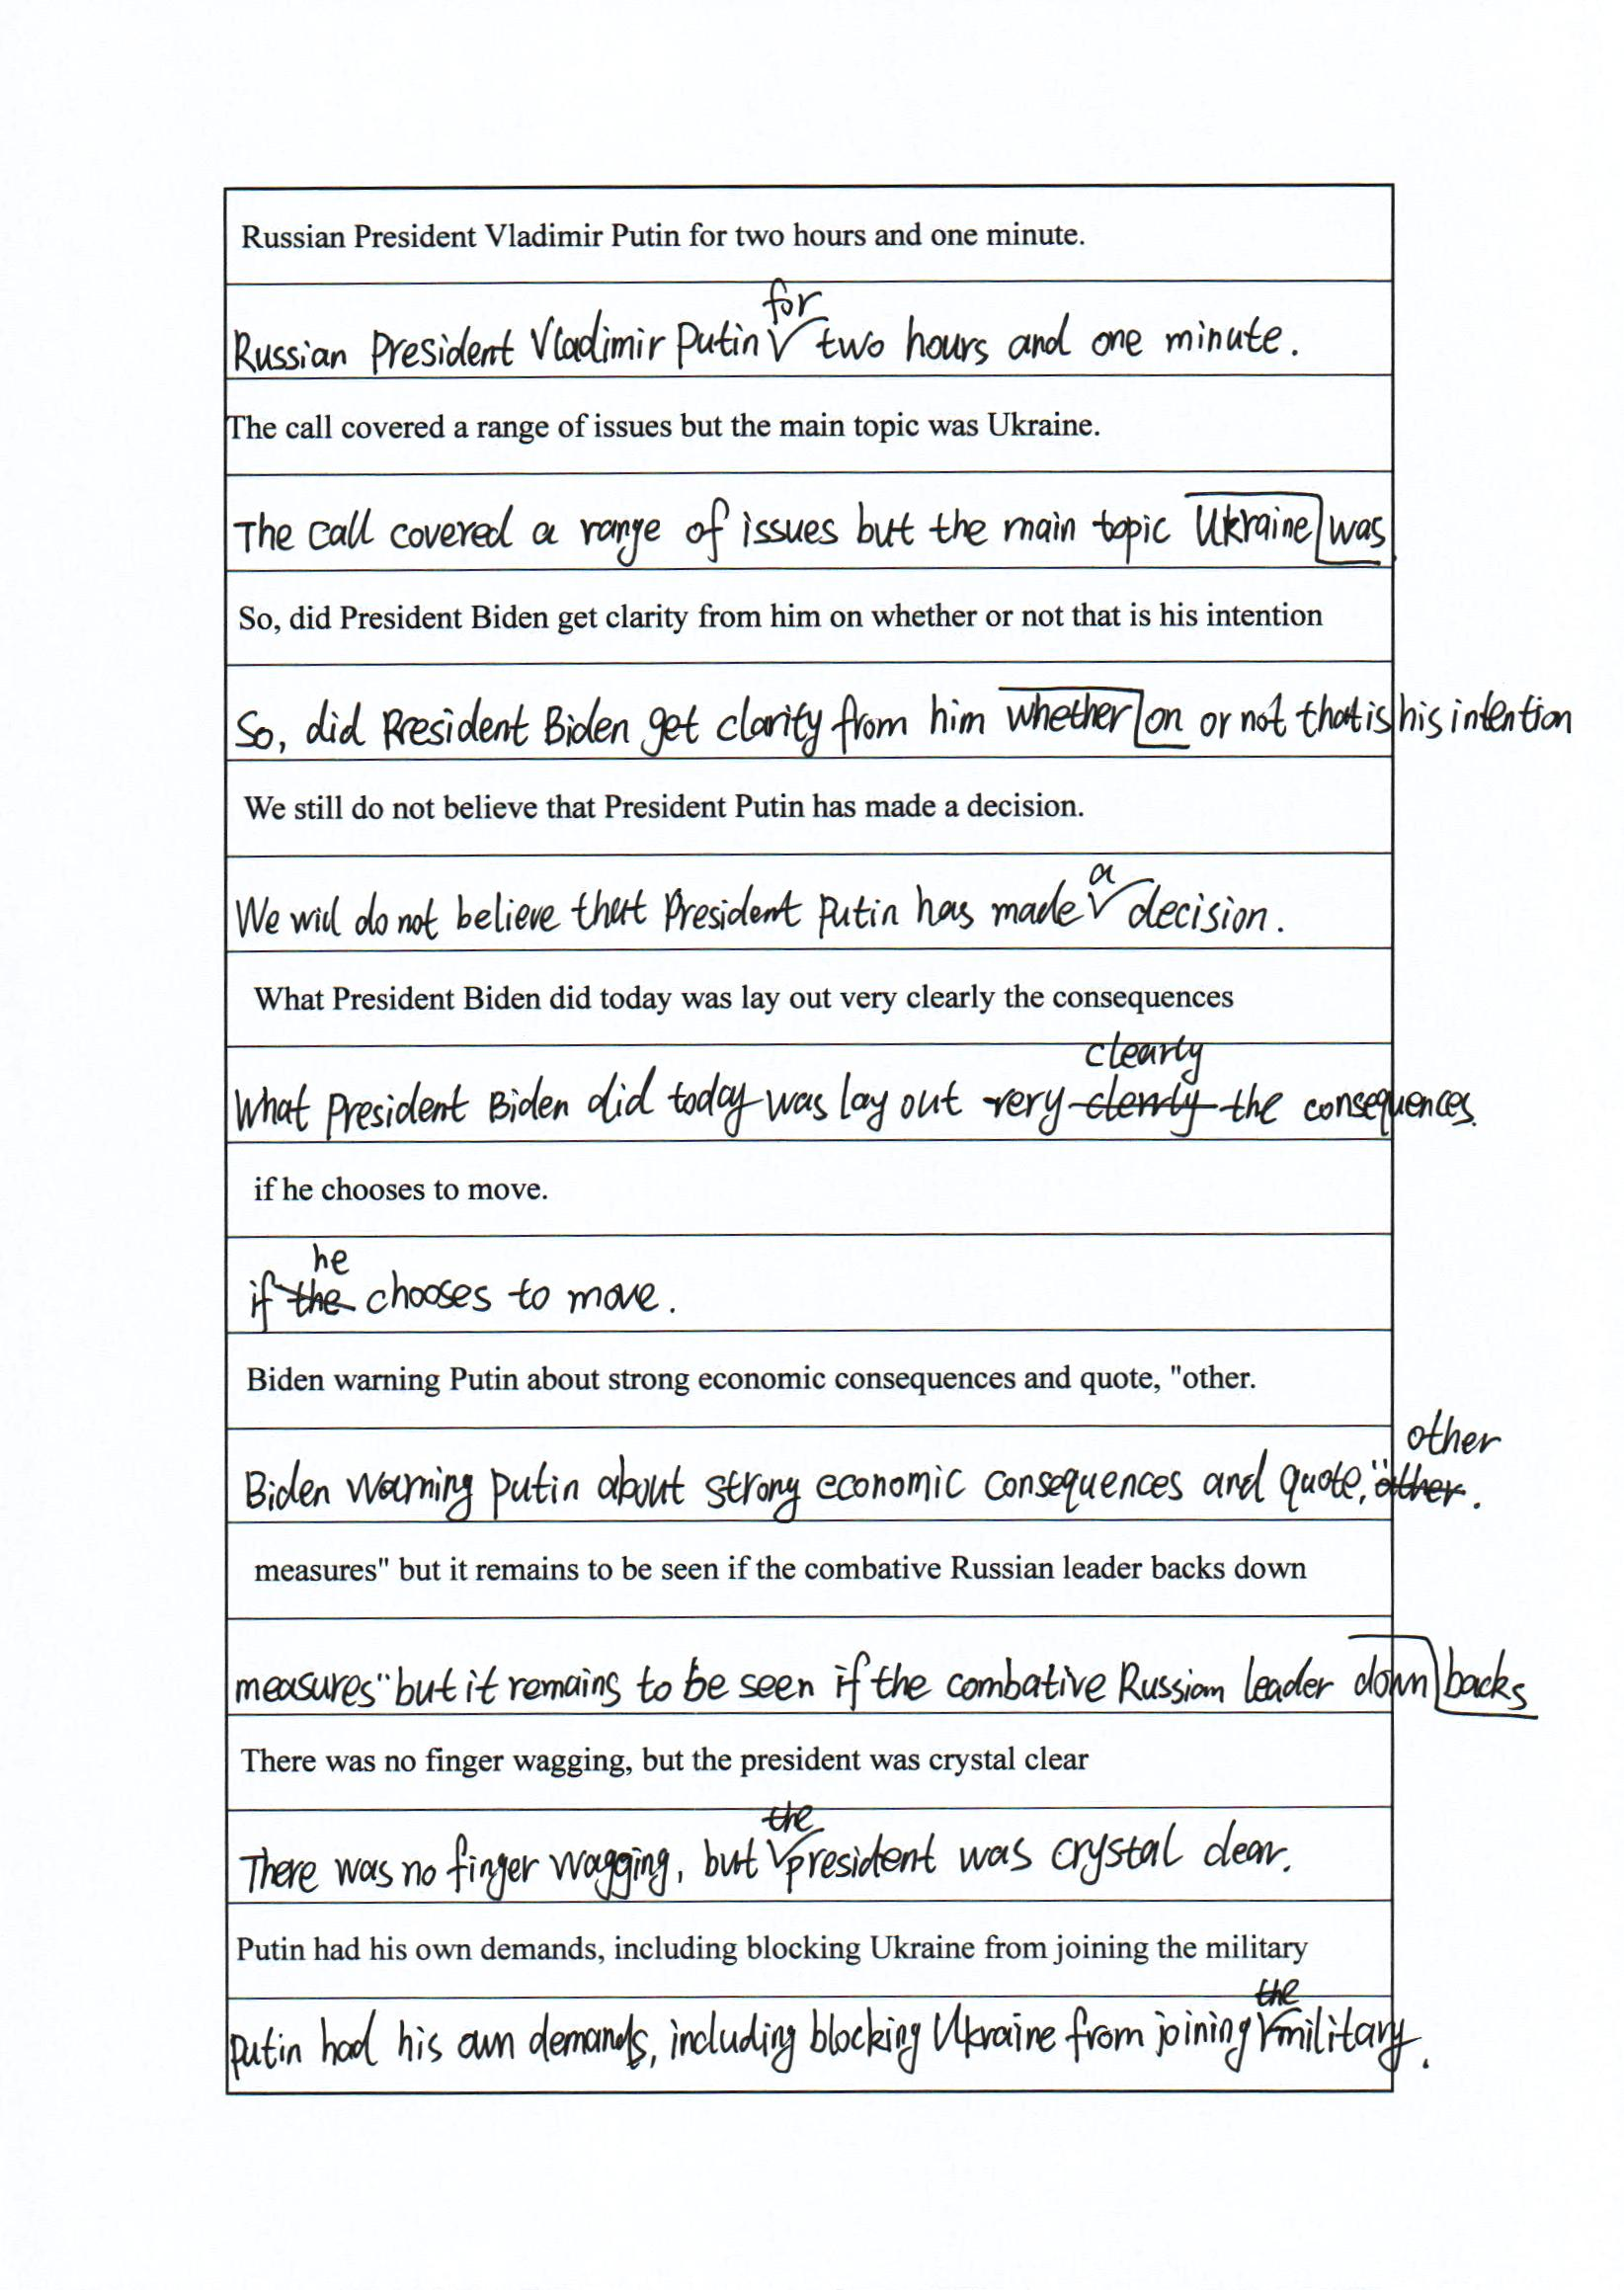 Russian President Vladimir Putin for two hours and one minute.
Russian President Vladimir Putin for two hours and one minute.
The call covered a range of issues but the main topic was Ukraine.
The call covered a range of issues but the main topic Ukraine was.
So, did President Biden get clarity from him on whether or not that is his intention
So, did President Biden get clarity from him whether on or not that is his intention
We still do not believe that President Putin has made a decision.
We will do not believe that President Putin has made a decision.
What President Biden did today was lay out very clearly the consequences
What President Biden did today was lay out very clearly the consequences.
if he chooses to move.
if he chooses to move.
Biden warning Putin about strong economic consequences and quote, "other.
Biden warning Putin about strong economic consequences and quote, "other.
measures" but it remains to be seen if the combative Russian leader backs down
measures" but it remains to be seen if the combative Russian leader down backs
There was no finger wagging, but the president was crystal clear
There was no finger wagging, but the president was crystal clear.
Putin had his own demands, including blocking Ukraine from joining the military
Putin had his own demands, including blocking Ukraine from joining the military.